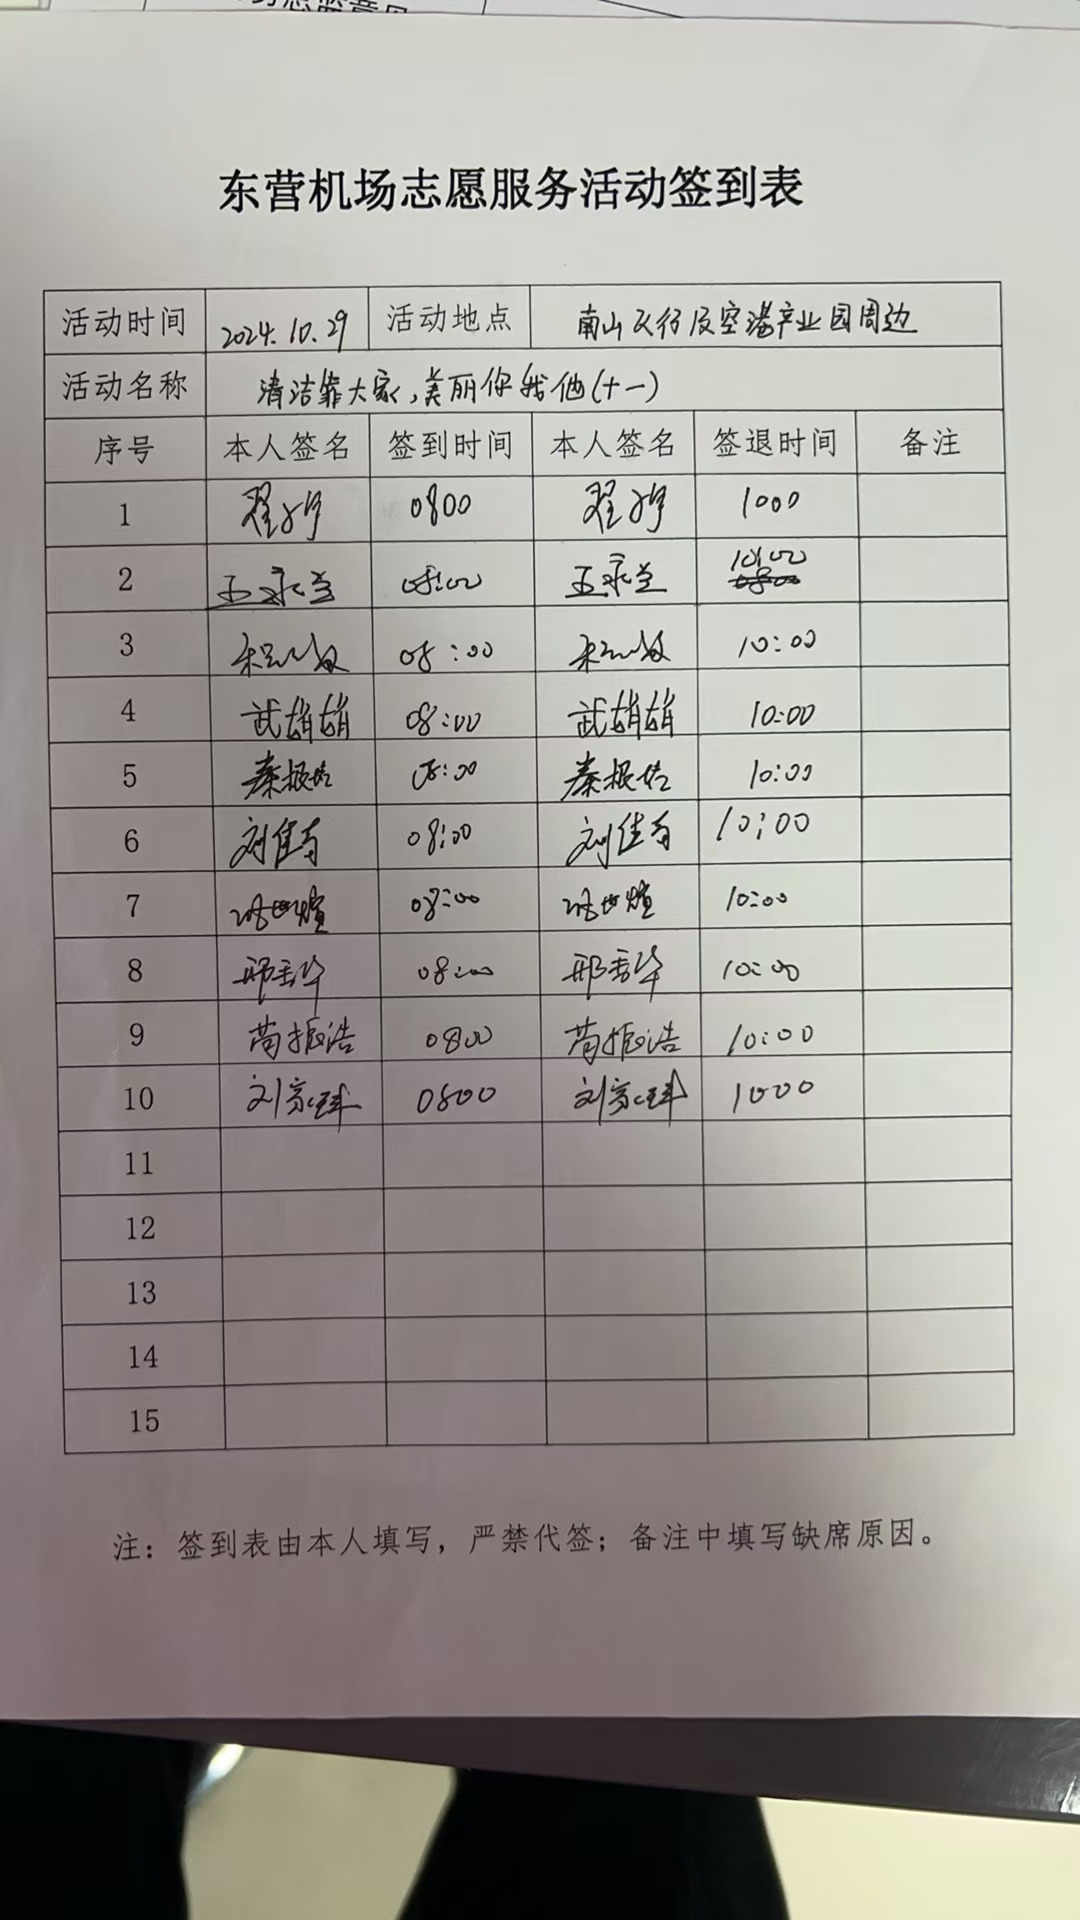 东营机场志愿服务活动签到表
活动时间 2024.10.29 活动地点 南山飞行及空港产业园周边
活动名称 清洁靠大家,美丽你我他(十一)
序号 本人签名 签到时间 本人签名 签退时间 备注
1 0800 1000
2 王永兰 08:00 王永兰 10:00
3 08:00 10:00
4 武娟娟 08:00 武娟娟 10:00
5 秦振 08:00 秦振 10:00
6 刘佳 08:00 刘佳 10:00
7 08:00 10:00
8 邢 华 08:00 邢 华 10:00
9 振浩 0800 振浩 10:00
10 刘家 0800 刘家 1000
11
12
13
14
15
注：签到表由本人填写，严禁代签；备注中填写缺席原因。